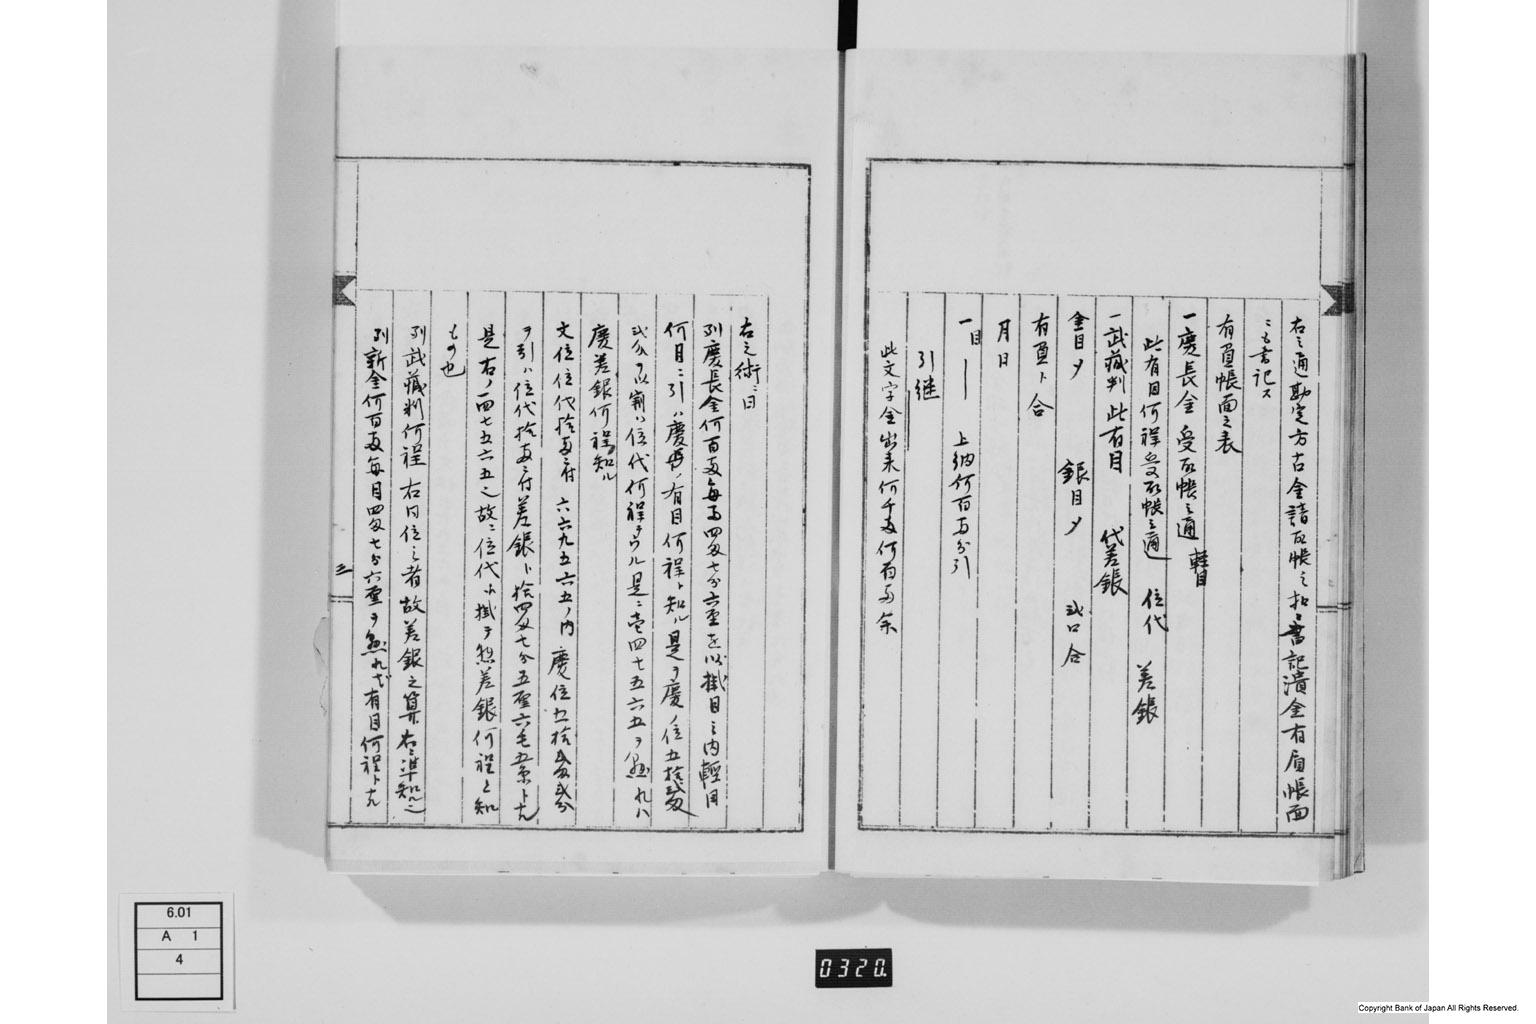 右之通勘定方古金請取帳之扣ニ書記潰金有員帳面
ニも書記ス
有員帳面之表
一慶長金 受取帳之通 軽目
此有目何程受取帳之通 位代 差銀
一武蔵判此有目 代差銀
金目〆 銀目〆 弐口合
有員ト合
月日
一目― 上納何百両分引
引継
此文字金出来何千両何百両余
右之術ニ曰
列慶長金何百両毎両四匁七分六厘を以掛目之内軽目
何目ニ引ハ慶長ノ有目何程ト知ル是ヲ慶ノ位五拾弐匁
弐分ヲ以割ハ位代何程ヲウル是ニ壱四七五六五ヲ懸れハ
慶差銀何程ヲ知ル
文位位代拾両ニ付 六六九五六五ノ内 慶位五拾弐匁弐分
ヲ引ハ位代拾両ニ付差銀ト拾四匁七分五厘六毛五糸ト成
是右ノ一四七五六五之故ニ位代ニ掛ケ差銀何程と知
もの也
列武蔵判何程 右同位之者故差銀之算右ニ準知ル之
列新金何百両毎目四匁七分六厘ヲ懸れは有目何程ト成
三
6.01
A 1
4
0320.
Copyright Bank of Japan All Rights Reserved.